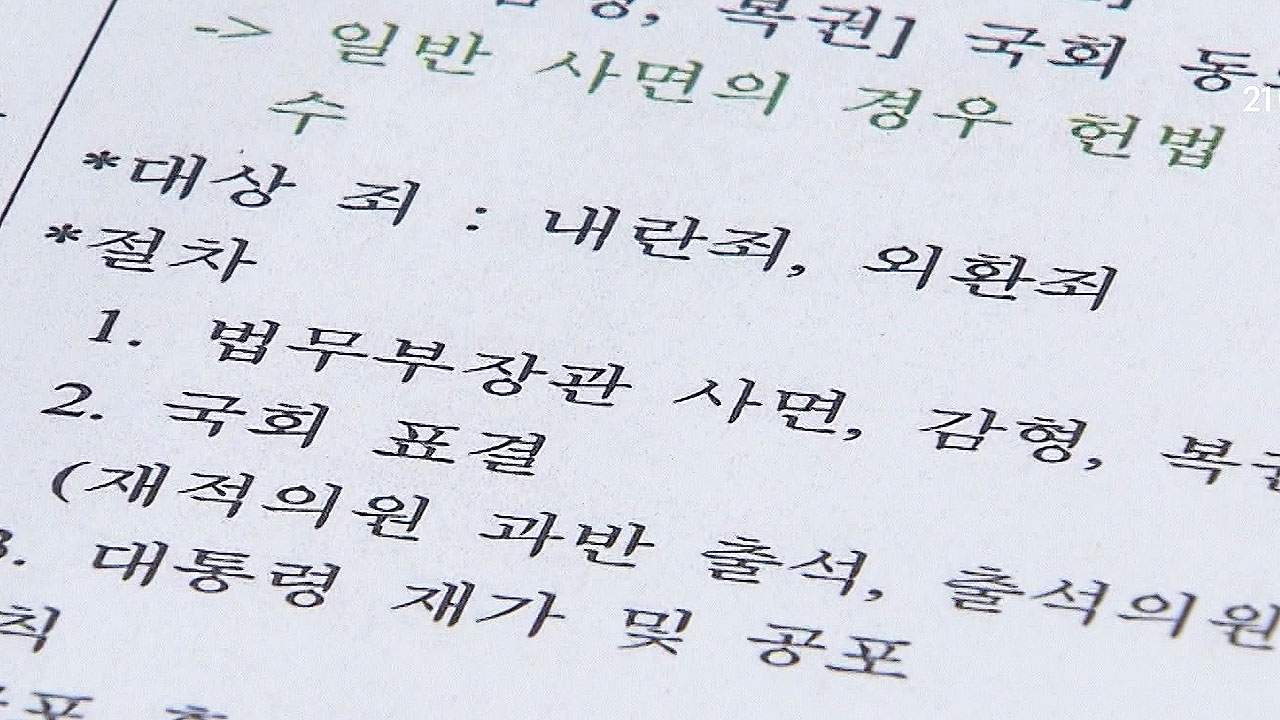 복권] 국회
-> 일반 사면의 경우 헌법
수
*대상 죄 : 내란죄, 외환죄
*절차
1. 법무부장관 사면, 감형, 복권
2. 국회 표결
(재적의원 과반 출석, 출석의원
3. 대통령 재가 및 공포
칙
21